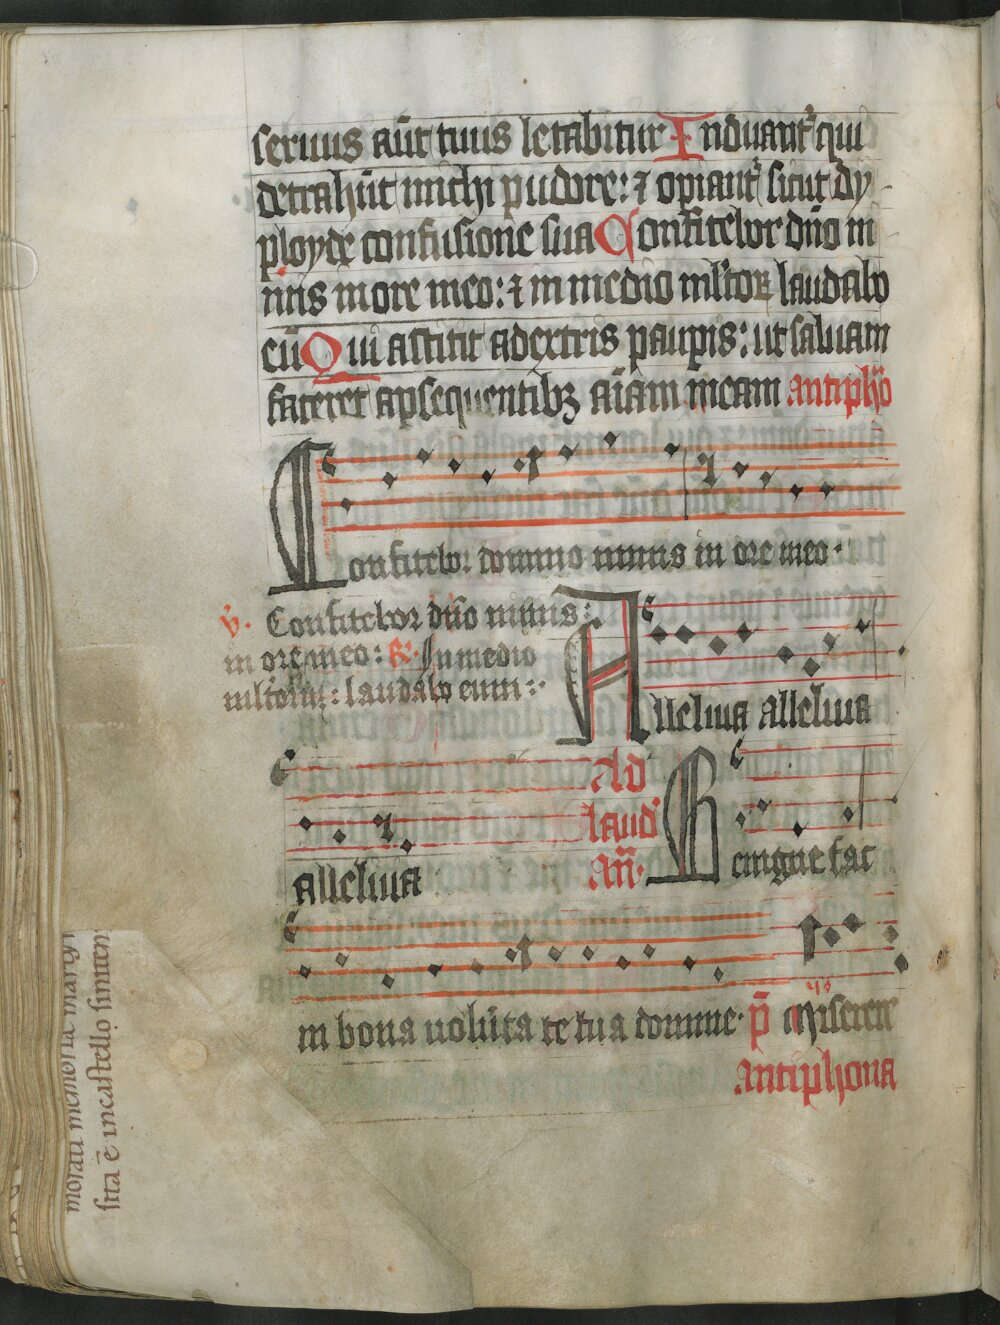 seruus aūt tuus letabitur Induant᷑ qui
detrahūt michi pudore: ⁊ opiant᷑ sicut dy
ployde confusione sua Confitebor dn̄o ni
mis in ore meo: ⁊ in medio ml̄toꝝ laudabo
eū Qui astitit a dextris paupis: ut saluam
faceret a psequentibꝫ aīam meam antipho
Confitebor domino nimis in ore meo
v̄. Confitebor dn̄o nimis:
in ore meo: R. In medio
multorum: laudabo eum:
Alleluia alleluia
Ad
laud
alleluia an̄. Benigne fac
in bona uolūta te tua domine. p̄ Miserere
antiphona
sita ē in castello